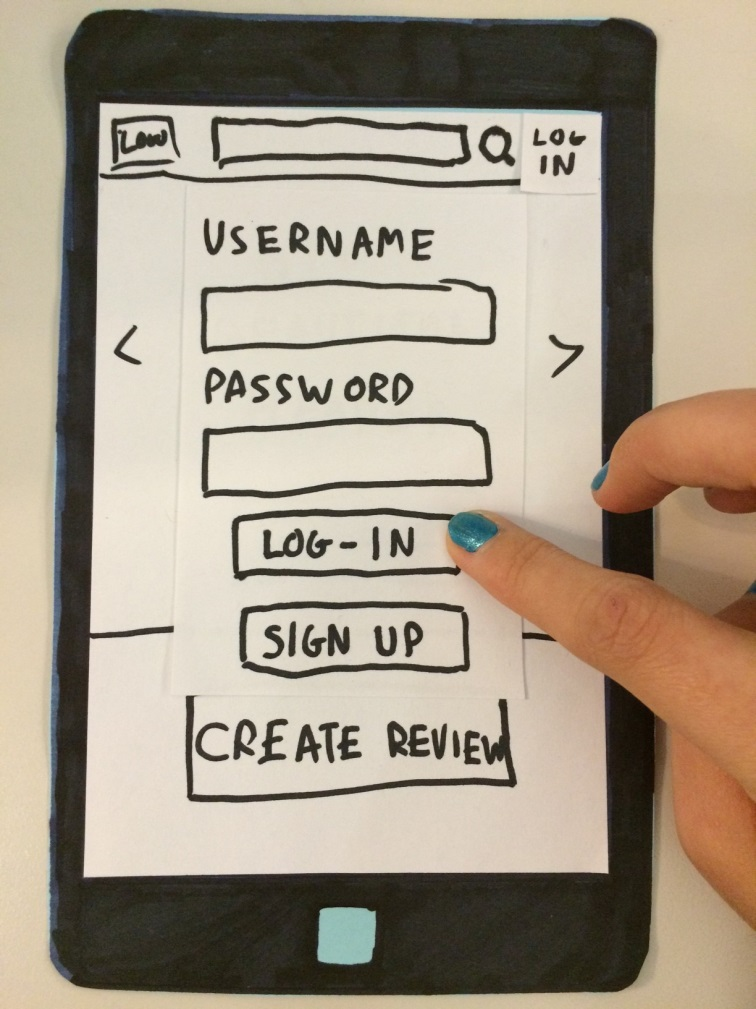 LOG
IN
USERNAME
< >
PASSWORD
LOG-IN
SIGN UP
CREATE REVIEW